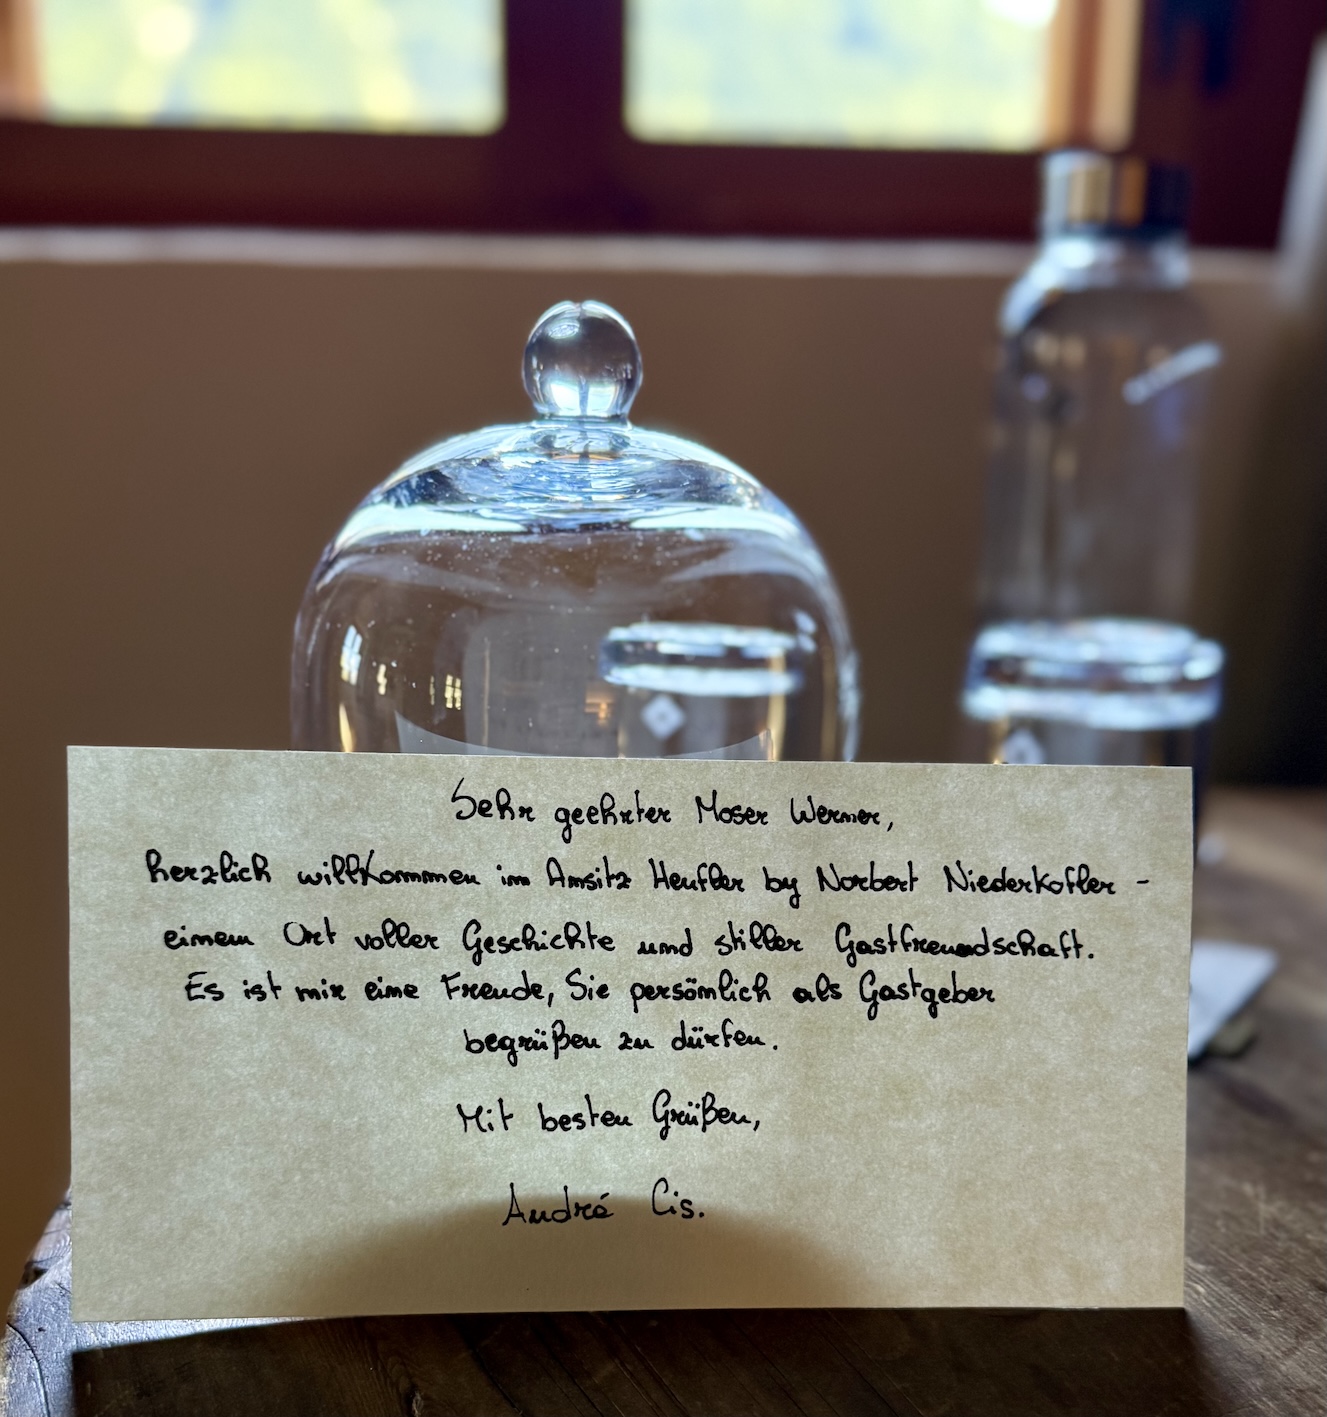 Sehr geehrter Moser Werner,
herzlich willkommen im Ansitz Heufler by Norbert Niederkofler -
einem Ort voller Geschichte und stiller Gastfreundschaft.
Es ist mir eine Freude, Sie persönlich als Gastgeber
begrüßen zu dürfen.
Mit besten Grüßen,
André Cis.